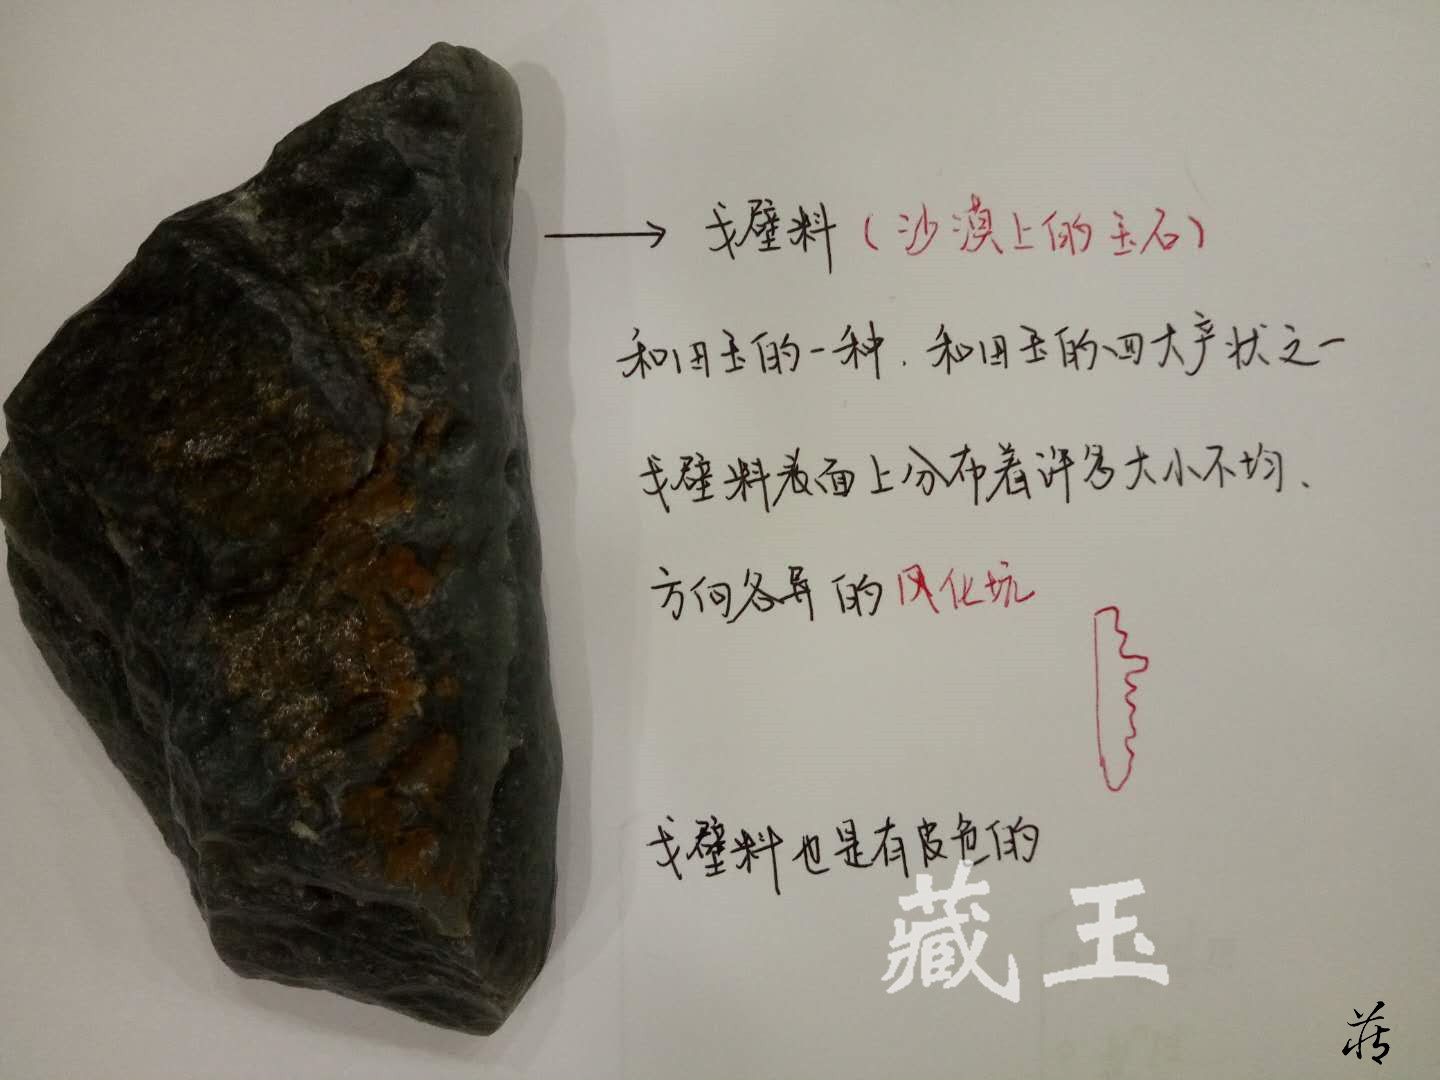 戈壁料（沙漠上的玉石）
和田玉的一种．和田玉的四大产状之一
戈壁料表面上分布着许多大小不均、
方向各异的风化坑
戈壁料也是有皮色的
藏玉